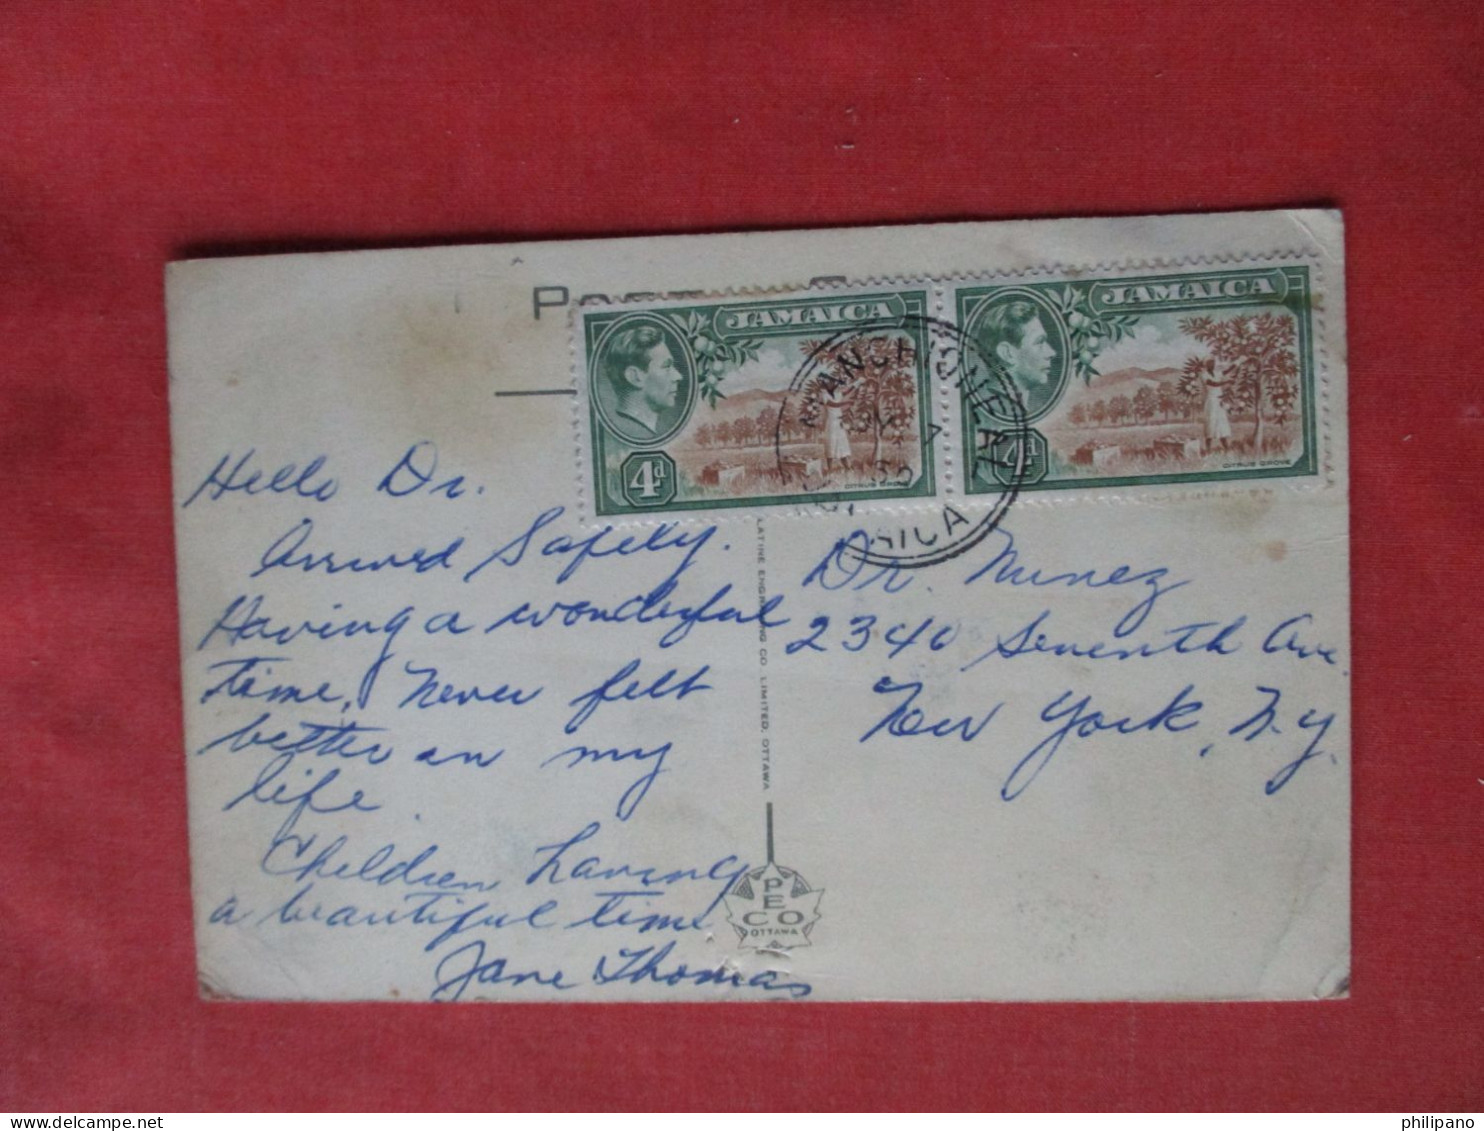 JAMAICA
4d
CITRUS GROVE
JAMAICA
4d
CITRUS GROVE
MANCHIONEAL
7
Hello Dr.
Arrived Safely.
Having a wonderful
time, Never felt
better in my
life.
Children having
a beautiful time
Jane Thomas
Dr. Nunez
2340 Seventh Ave.
New York, N.Y.
LATINE ENGRAVING CO. LIMITED, OTTAWA
PECO
OTTAWA
philipano